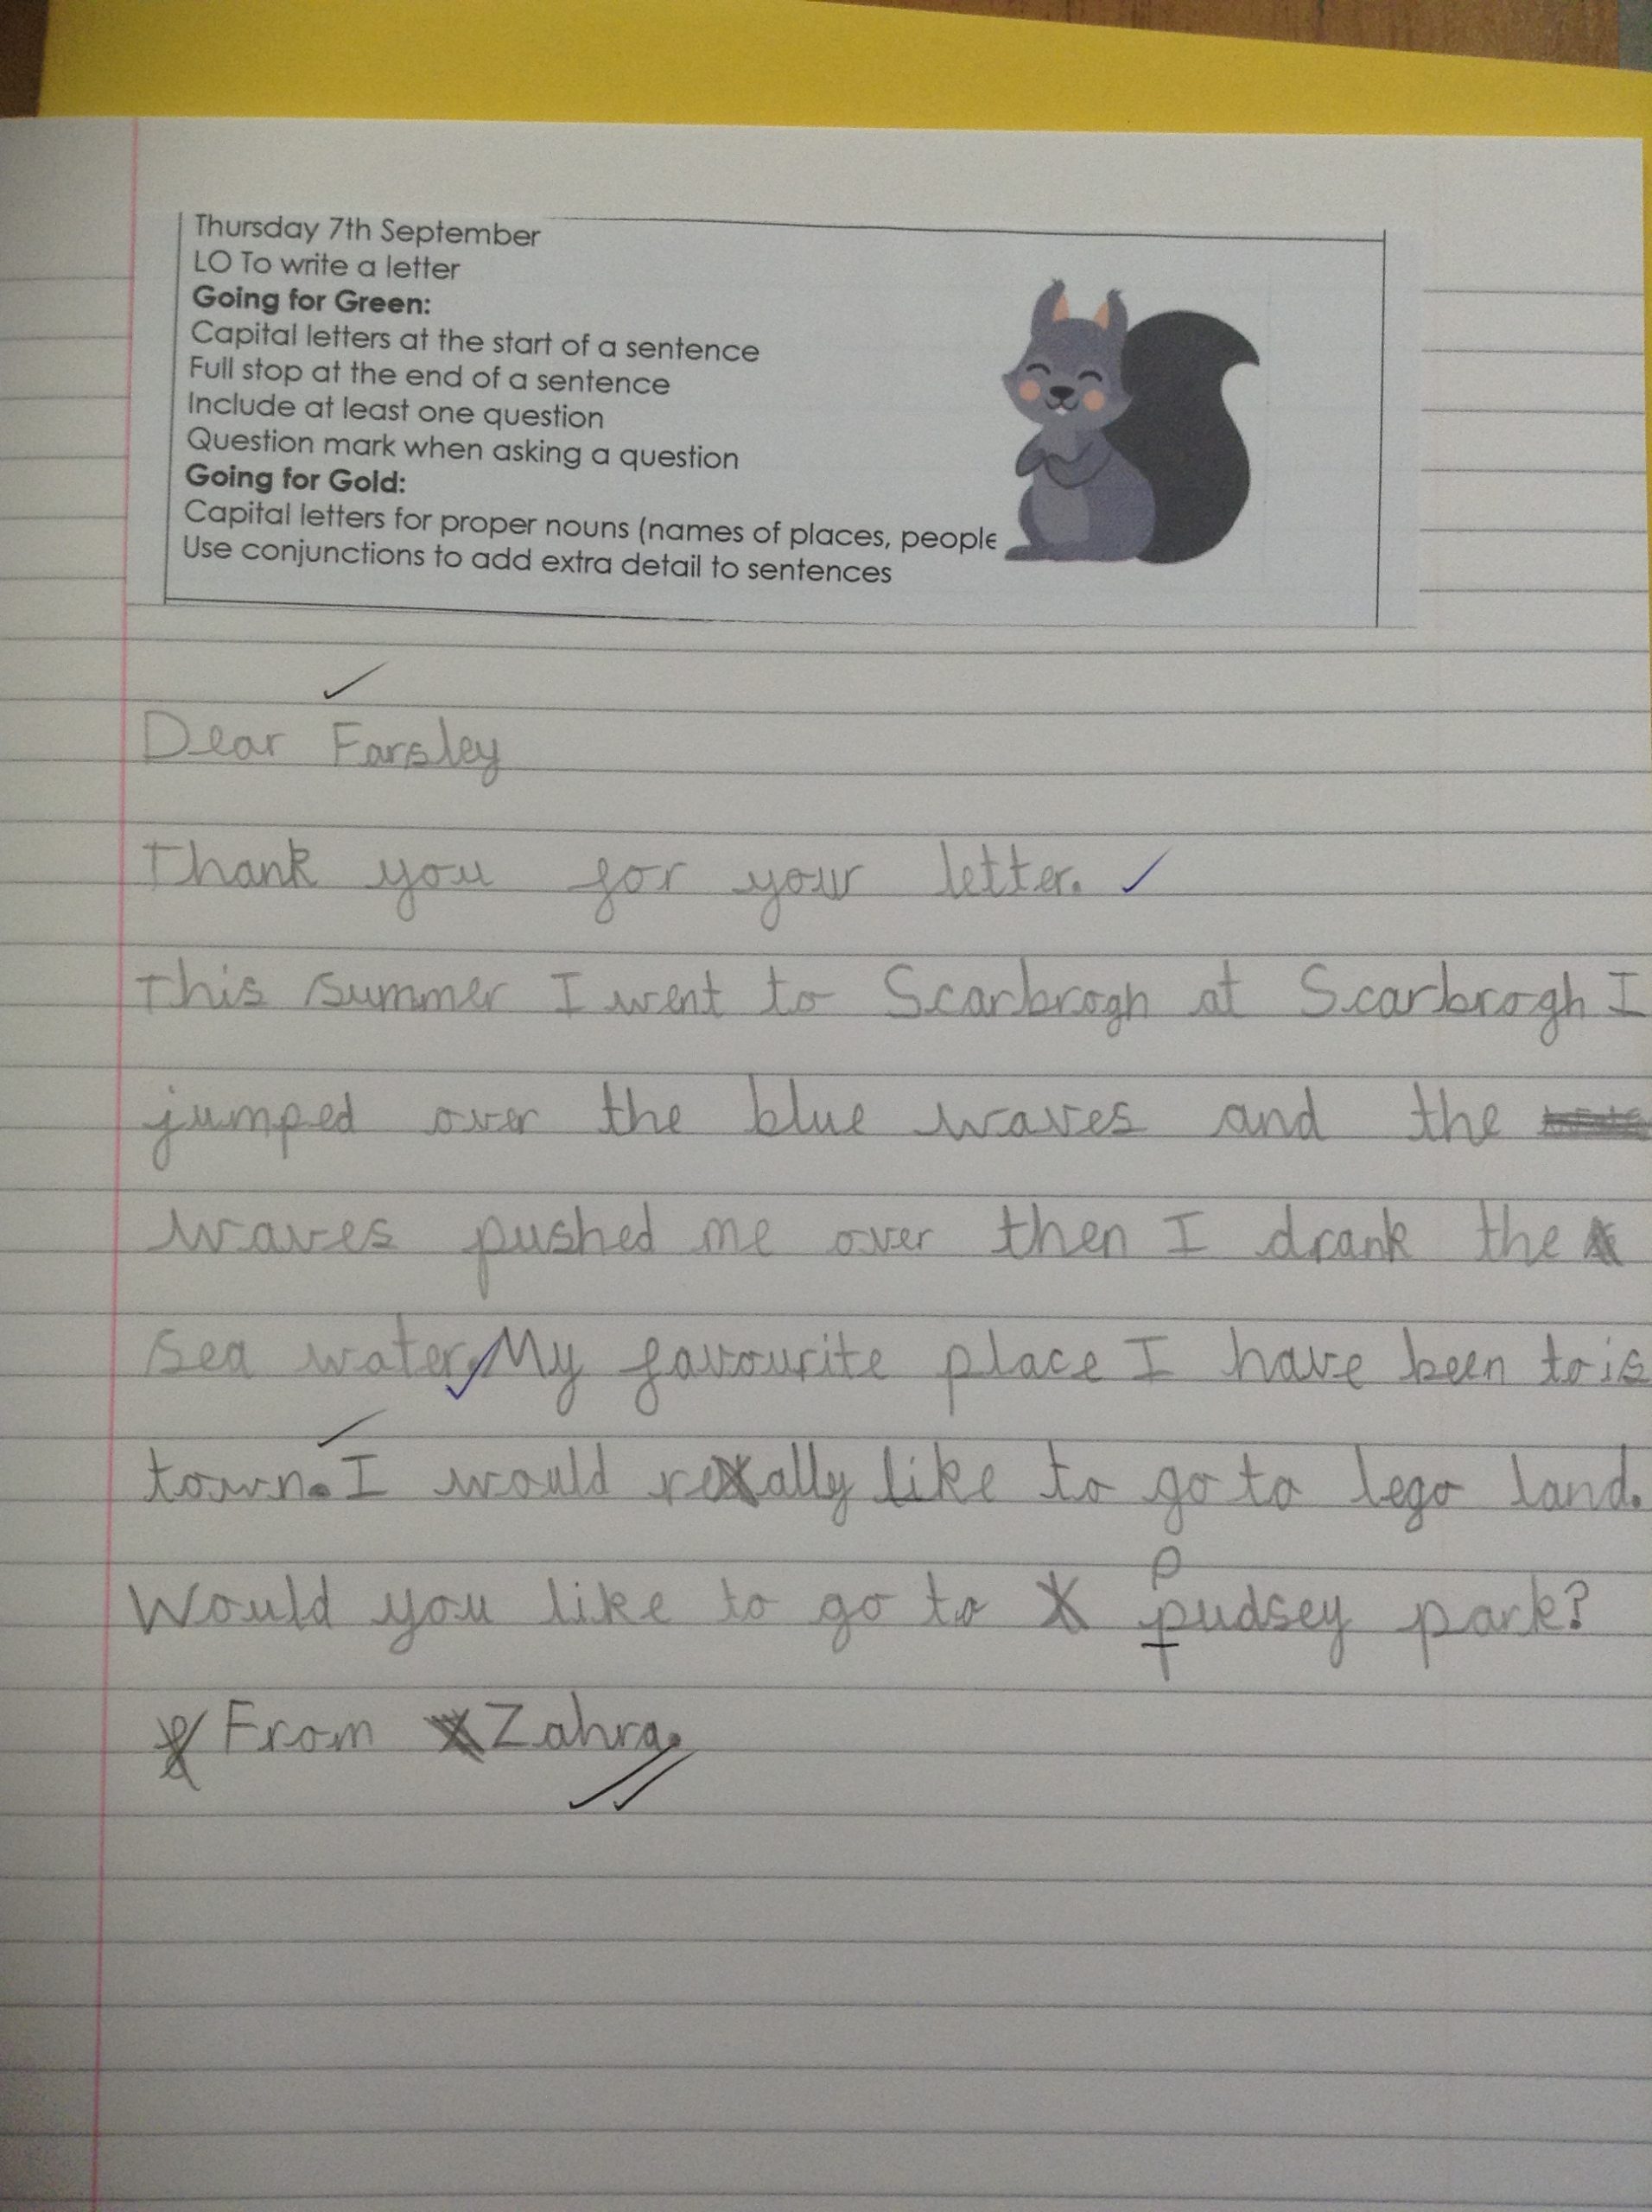 Thursday 7th September
LO To write a letter
Going for Green:
Capital letters at the start of a sentence
Full stop at the end of a sentence
Include at least one question
Question mark when asking a question
Going for Gold:
Capital letters for proper nouns (names of places, people
Use conjunctions to add extra detail to sentences
Dear Farsley
Thank you for your letter.
This summer I went to Scarbrogh at Scarbrogh I
jumped over the blue waves and the
waves pushed me over then I drank the
sea water. My favourite place I have been to is
town. I would really like to go to lego land.
P
Would you like to go to pudsey park?
From Zahra.